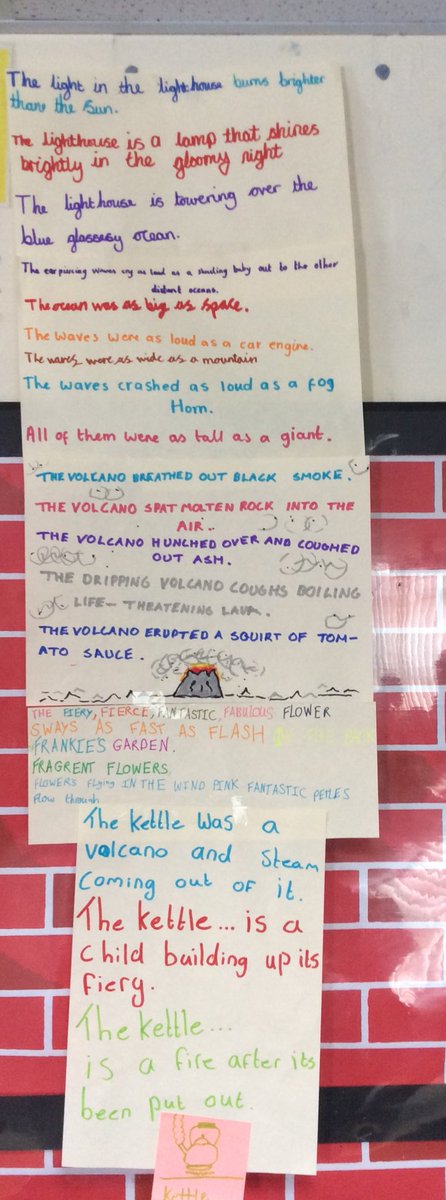 The light in the lighthouse burns brighter
than the sun.
The lighthouse is a lamp that shines
brightly in the gloomy night
The lighthouse is towering over the
blue glassesy ocean.
The earpurcing waves cry as loud as a baby out to the other
distant oceans.
The ocean was as big as space.
The waves were as loud as a car engine.
The waves were as wide as a mountain
The waves crashed as loud as a fog
Horn.
All of them were as tall as a giant.
THE VOLCANO BREATHED OUT BLACK SMOKE.
THE VOLCANO SPAT MOLTEN ROCK INTO THE
AIR.
THE VOLCANO HUNCHED OVER AND COUGHED
OUT ASH.
THE DRIPPING VOLCANO COUGHS BOILING
LIFE- THEATENING LAVA.
THE VOLCANO ERUPTED A SQUIRT OF TOM-
ATO SAUCE.
THE FIERY, FIERCE, FANTASTIC, FABULOUS FLOWER
SWAYS AS FAST AS FLASH
FRANKIE'S GARDEN.
FRAGRENT FLOWERS
FLOWERS Flying IN THE WIND PINK FANTASTIC PETLES
flow through
The kettle was a
volcano and steam
coming out of it.
The kettle... is a
child building up its
fiery.
The kettle...
is a fire after its
been put out.
kettle